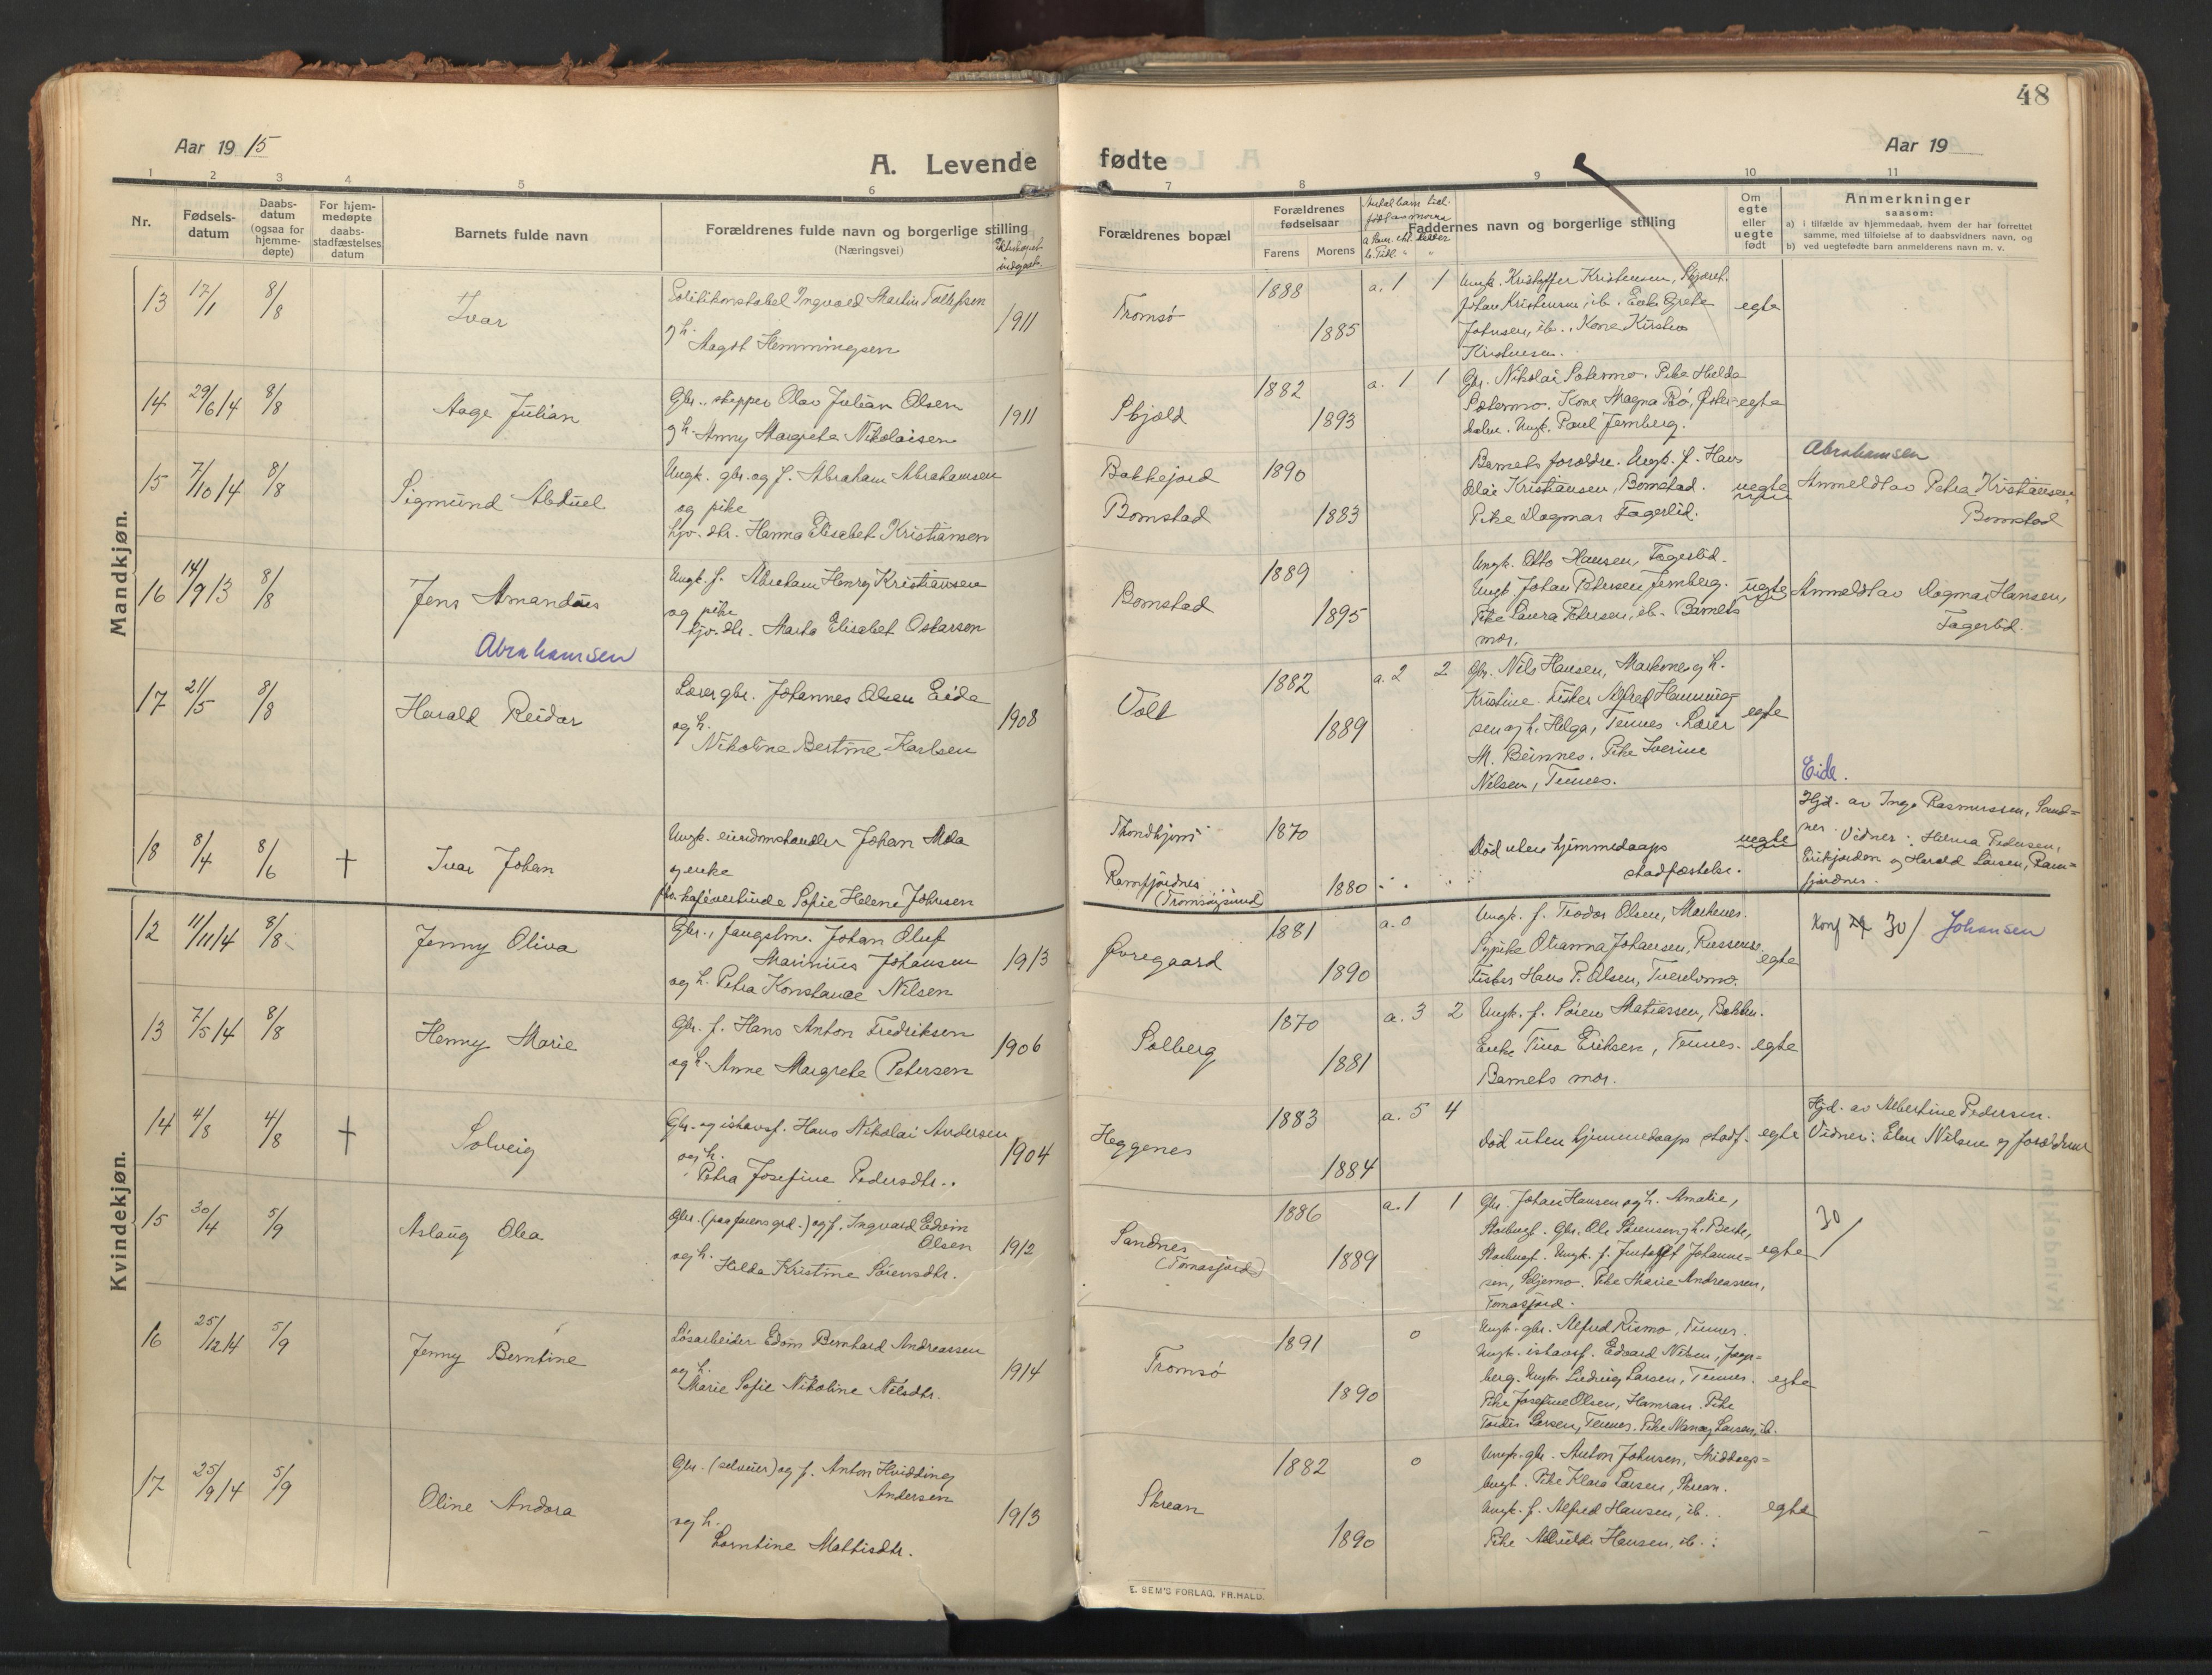 48
Aar 19 15
A. Levende
fødte
Aar 19
1 2 3 4 5 6 7 8 9 10 11
Nr.
Fødsels-
datum
Daabs-
datum
(ogsaa for
hjemme-
døpte)
For hjem-
medøpte
daabs-
stadfæstelses
datum
Barnets fulde navn
Forældrenes fulde navn og borgerlige stilling
(Næringsvei)
Forældrenes bopæl
Forældrenes
fødselsaar
Farens Morens
Faddernes navn og borgerlige stilling
Om
egte
eller
uegte
født
Anmerkninger
saasom:
a) i tilfælde av hjemmedaab, hvem der har forrettet
samme, med tilføielse af to daabsvidners navn, og
b) ved uegtefødte barn anmelderens navn m. v.
Mandkjøn.
13 17/1 8/8 Ivar
Ingvald Martin Tollefsen
og h. Magdt Hemmingsen
1911
Tromsø
1888
1885
a. 1 1
Ungk. Kristoffer Kristensen,
Johan Kristensen, ib. Enke Grete
Johnsen, ib., Kone Kirsten
Kristensen.
egte
14 29/6 14 8/8 Aage Julian
Gbr., skipper Olav Julian Olsen
og h. Anny Margrete Nikolaisen
1911
Skjæld
1882
1893
a. 1 1
Gbr. Nikolai Sætermo. Pike Hulda
Sætermo. Kone Magna Bø,
dalen. Ungk. Paul Jernberg.
egte
15 7/10 14 8/8 Sigmund Abduel
Ungk. gbr. og f. Abraham Abrahamsen
og pike
hjv. dtr. Hanna Elisabet Kristiansen
Bakkejord
Bomstad
1890
1883
Barnets forældre. Ungk. f. Hans
Kristiansen, Bomstad.
Pike Dagmar Fagerlid.
uegte
Abrahamsen
Anmeldt av Petra Kristiansen,
Bomstad
16 14/9 13 8/8 Jens Amandus
Abrahamsen
Ungk. f. Abraham Henry Kristiansen
og pike
hjv. dtr. Marta Elisabet Oskarsen
Bomstad
1889
1895
Ungk. Otto Hansen, Fagerlid.
Ungk. Johan Petersen Jernberg.
Pike Laura Petersen, ib. Barnets
mor.
uegte
Anmeldt av Dagmar Hansen,
Fagerlid.
17 21/5 8/8 Harald Reidar
Lærer gbr. Johannes Olsen Eide
og h.
Nikoline Bertine Karlsen
1908
Vold
1882
1889
a. 2 2
Gbr. Nils Hansen, og h.
Kristine. Fisker Alfred Hemming=
sen og h. Helga, Tennes. Lærer
M. Beinnes. Pike Iverine
Nilsen, Tennes.
egte
Eide.
18 8/4 8/6 † Ivar Johan
Ungk. eiendomshandler Johan Mola
og enke
Sofie Helene Johnsen
Trondhjem
Ramfjordnes
(Tromsøysund)
1870
1880
Død uten hjemmedaaps
stadfæstelse.
uegte
Hjd. av Inga Rasmussen, Sand=
nes. Vidner: Hilma Pedersen,
Eirikjorden og Harald Larsen, Ram=
fjordnes.
Kvindekjøn.
12 11/11 14 8/8 Jenny Oliva
Gbr., fangstm. Johan Oluf
Marinius Johansen
og h. Petra Konstance Nilsen
1913
Øvregaard
1881
1890
a. 0
Ungk. f. Teodor Olsen,
Otianna Johansen,
Fisker Hans P. Olsen,
egte
Konf 30/ Johansen
13 7/5 14 8/8 Henny Marie
Gbr. f. Hans Anton Fredriksen
og h. Anne Margrete Petersen
1906
Solberg
1870
1881
a. 3 2
Ungk. f. Søren Matiassen, Bakken.
Enke Tina Eriksen, Tennes.
Barnets mor.
egte
14 4/8 4/8 † Solveig
Gbr. og ishavsf. Hans Nikolai Andersen
og h.
Petra Josefine Pedersdtr.
1904
Heggenes
1883
1884
a. 5 4
Død uten hjemmedaaps stadf.
egte
Hjd. av Albertine Pedersen.
Vidner: Elen Nilsen og forældrene
15 30/4 5/9 Aslaug Olea
Gbr. (paa farens grd.) og f. Ingvard Edvin
Olsen
og h. Hilda Kristine Sørensdtr.
1912
Sandnes
(Tomasjord)
1886
1889
a. 1 1
Gbr. Johan Hansen og h. Amalie,
Gbr. Ole Sørensen og h. Berte,
Ungk. f. Johanne=
sen, Pike Marie Andreassen,
Tomasjord.
egte
30/
16 25/12 14 5/9 Jenny Berntine
Løsarbeider Edvin Bernhard Andreassen
og h.
Marie Sofie Nikoline Nilsdtr.
1914
Tromsø
1891
1890
0
Ungk. gbr. Alfred Rismo, Tennes.
Ungk. ishavsf. Edvard Nilsen,
berg. Ungk. Ludvig Larsen, Tennes.
Pike Josefine Olsen, Hamran. Pike
Larsen, Tennes. Pike Larsen, ib.
egte
17 25/9 14 5/9 Oline Andora
Gbr. (selveier) og f. Anton Hvidding
Andersen
og h.
Lorntine Mattisdtr.
1913
Skrean
1882
1890
0
Ungk. gbr. Anton Johnsen,
Pike Klara Larsen, Skrean.
Ungk. f. Alfred Hansen, ib.
Pike Hansen, ib.
egte
E. SEM'S FORLAG, FR.HALD.